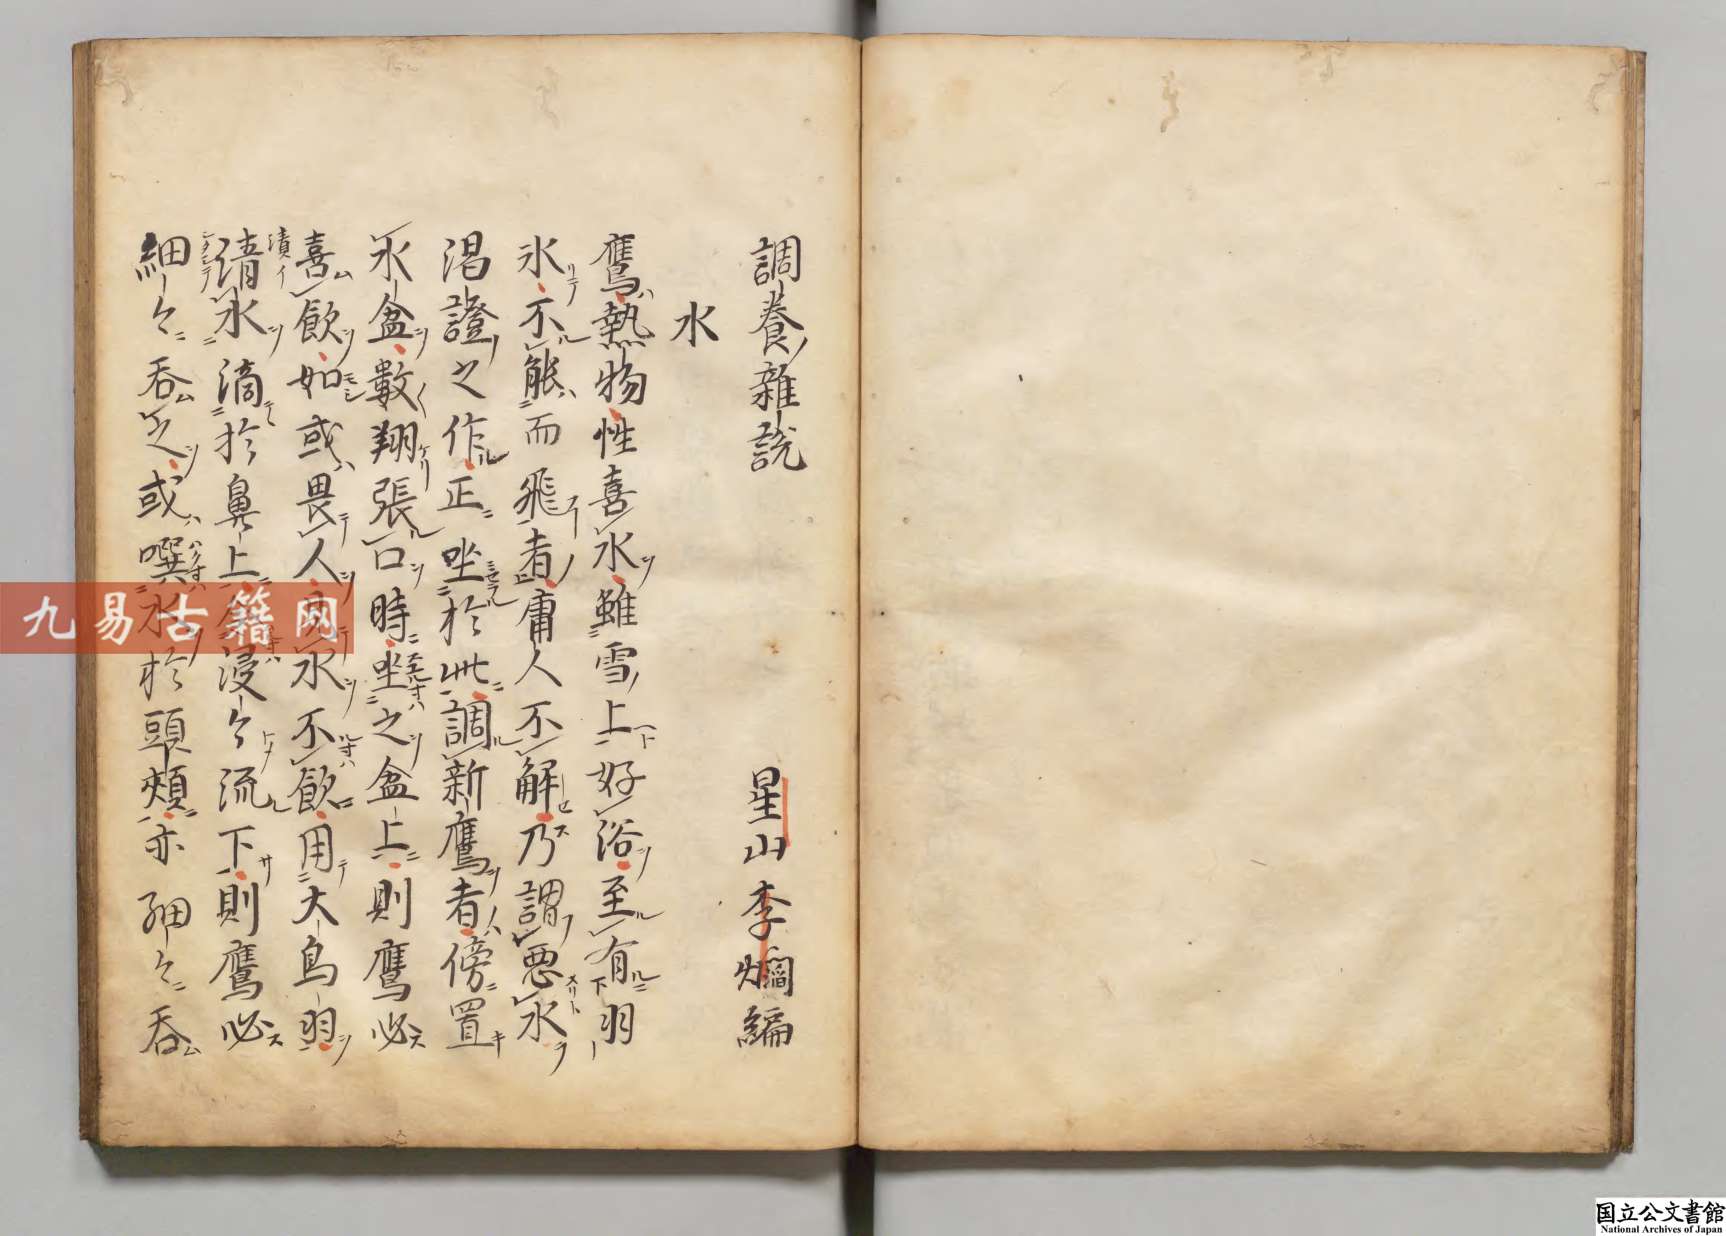 調養雜說　星山李爓編
水
鷹熱物性喜水雖雪上好浴至有羽
氷不能而飛者庸人不解乃謂惡水
渇證之作正坐於此調新鷹者傍置
水盆數翔張口時坐之盆上則鷹必
喜飲如或畏人見水不飲用大鳥羽
清水滴於鼻上令浸々流下則鷹必
漬イ
細々吞之或噀水於頭頰亦細々吞
九易古籍网
国立公文書館
National Archives of Japan